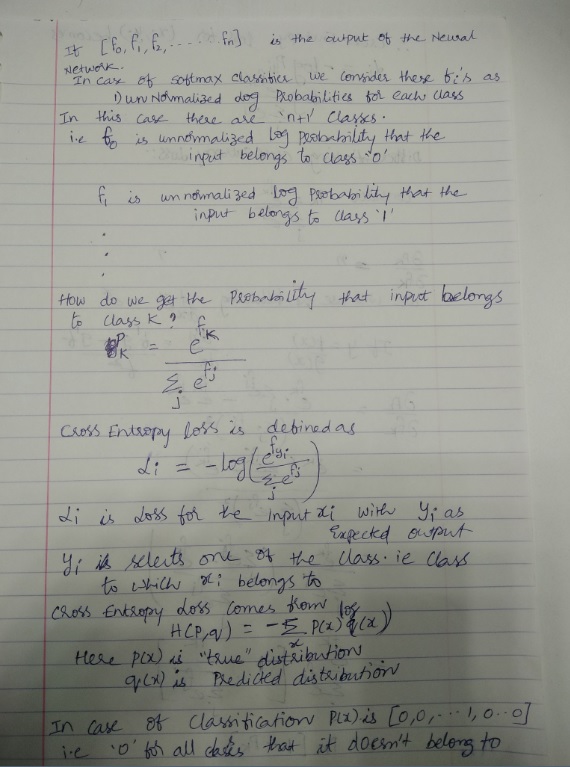 If [f₀, f₁, f₂, ...... fn] is the output of the Neural
Network.
In case of softmax classifier we consider these fi's as
1) unNormalized log Probabilities for each class
In this case there are 'n+1' classes.
i.e f₀ is unnormalized log Probability that the
input belongs to class '0'
f₁ is unnormalized log Probability that the
input belongs to class '1'
.
.
.
How do we get the Probability that input belongs
to class K?
P_K = e^{f_K} / Σ_j e^{f_j}
Cross Entropy loss is defined as
Li = -log(e^{f_{yi}} / Σ_j e^{f_j})
Li is Loss for the input xi with yi as
Expected output
yi selects one of the class. ie class
to which xi belongs to
Cross Entropy Loss comes from
H(P,q) = -Σ_x P(x) log q(x)
Here P(x) is "true" distribution
q(x) is Predicted distribution
In case of Classification P(x) is [0,0,...1,0..0]
i.e '0' for all classes that it doesn't belong to